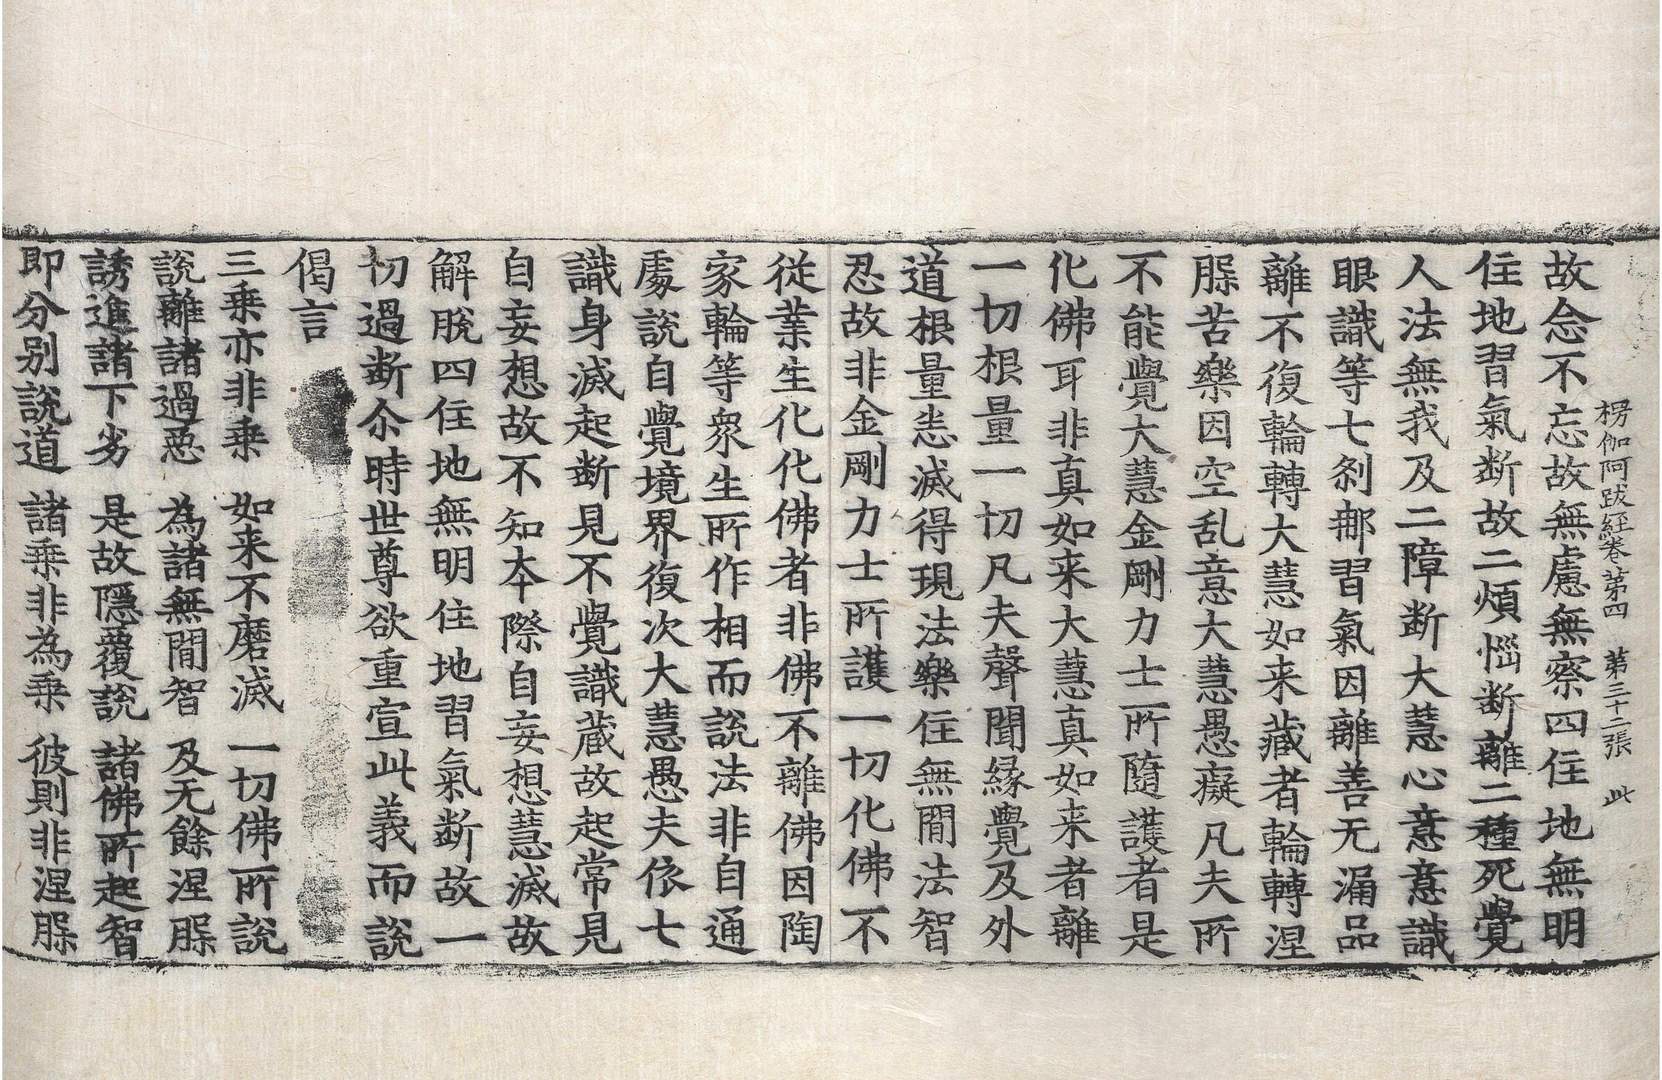 楞伽阿跋經卷第四 第三十二張 此
故念不忘故無慮無察四住地無明
住地習氣断故二煩惱断離二種死覺
人法無我及二障断大慧心意意識
眼識等七刹那習氣因離善无漏品
離不復輪轉大慧如来藏者輪轉涅
𦙶苦樂因空乱意大慧愚癡凡夫所
不能覺大慧金剛力士所隨護者是
化佛耳非真如来大慧真如来者離
一切根量一切凡夫聲聞緣覺及外
道根量悉滅得現法樂住無閒法智
忍故非金剛力士所護一切化佛不
從業生化化佛者非佛不離佛因陶
家輪等衆生所作相而說法非自通
處說自覺境界復次大慧愚夫依七
識身滅起断見不覺識藏故起常見
自妄想故不知本際自妄想慧滅故
解脫四住地無明住地習氣断故一
切過断尒時世尊欲重宣此義而說
偈言
三乗亦非乗 如来不磨滅 一切佛所說
說離諸過惡 為諸無閒智 及无餘涅𦙶
誘進諸下劣 是故隱覆說 諸佛所起智
即分別說道 諸乗非為乗 彼則非涅𦙶